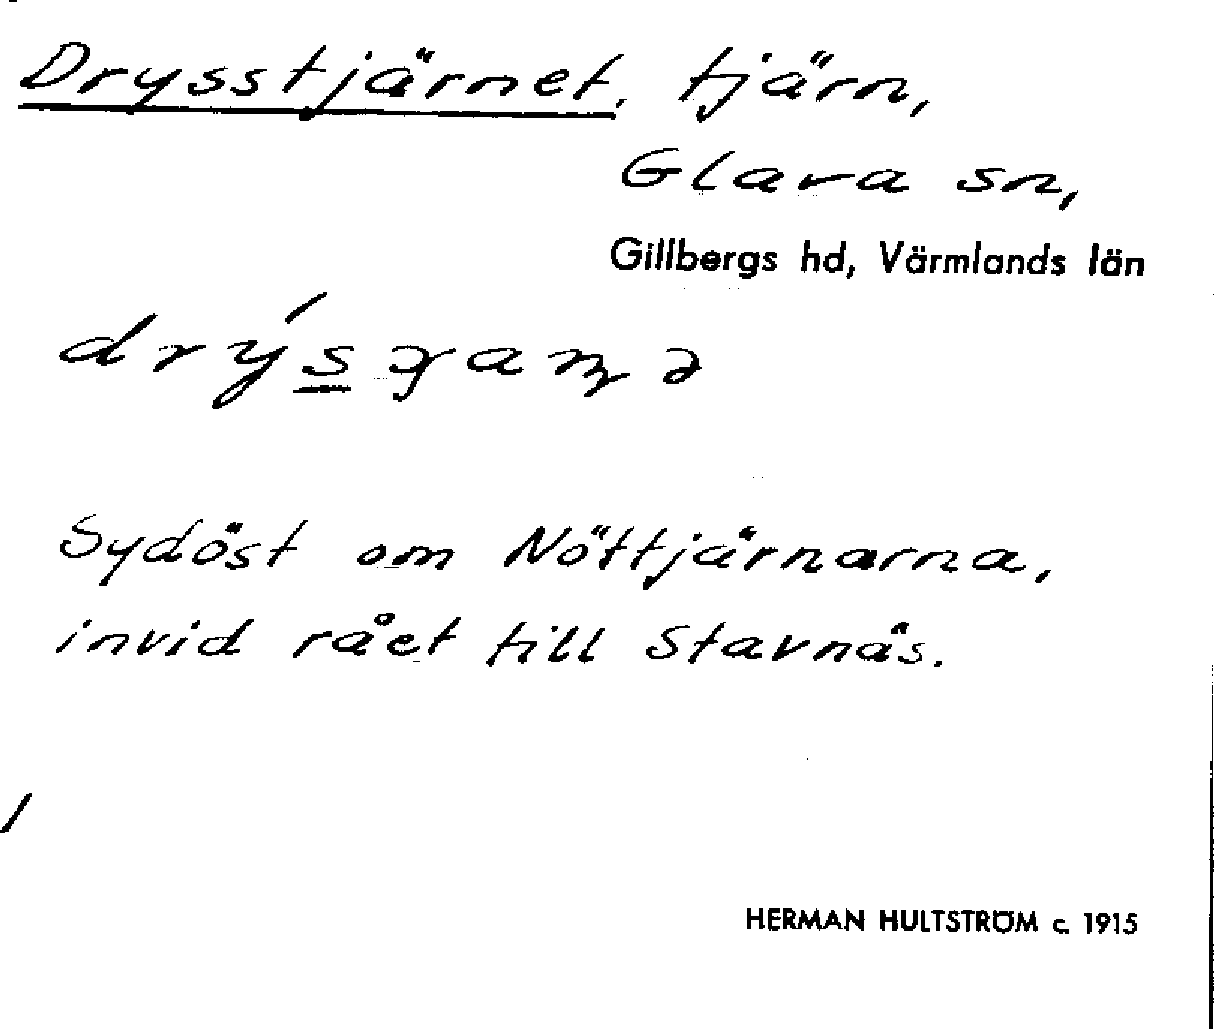 Drysstjärnet, tjärn,
Glava sn,
Gillbergs hd, Värmlands län
Sydöst om Nöttjärnarna,
invid rået till Stavnäs.
HERMAN HULTSTRÖM c. 1915